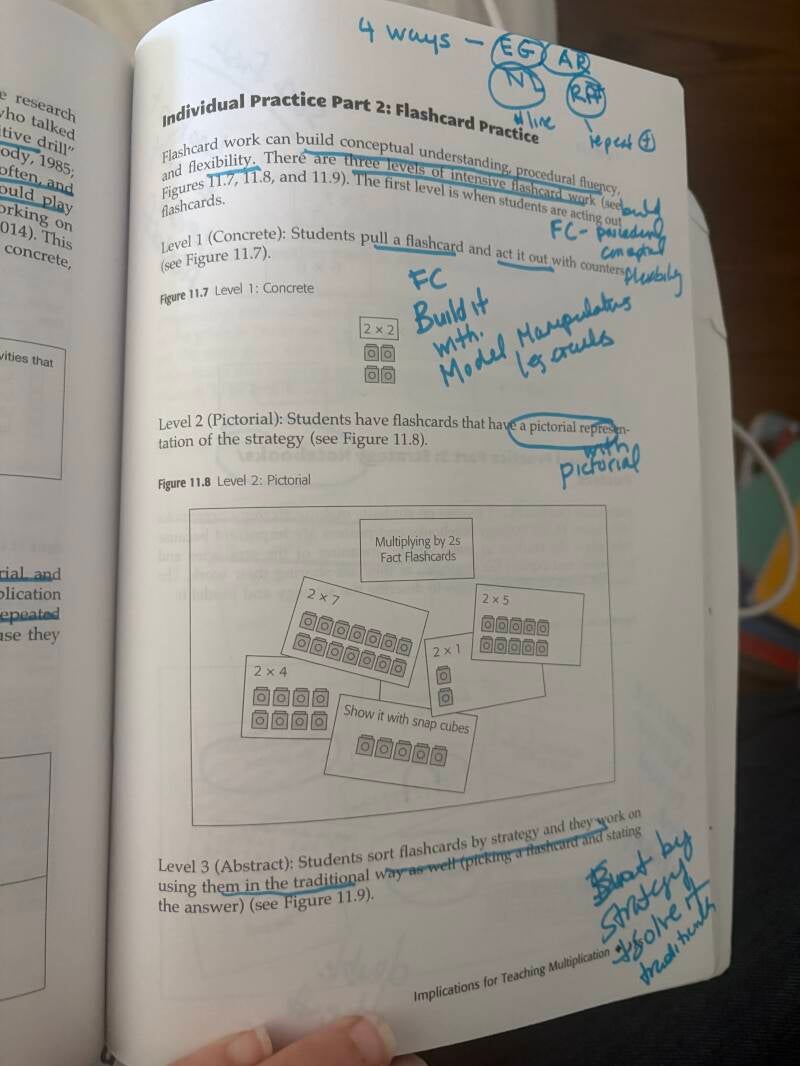 4 ways – EG AR
NL RA
# line
repeat +
e research
who talked
tive drill"
ody, 1985;
often, and
ould play
orking on
014). This
concrete,
vities that
rial and
plication
epeated
use they
Individual Practice Part 2: Flashcard Practice
Flashcard work can build conceptual understanding, procedural fluency,
and flexibility. There are three levels of intensive flashcard work (see
Figures 11.7, 11.8, and 11.9). The first level is when students are acting out
flashcards.
build
FC - procedural
conceptual
flexibility
Level 1 (Concrete): Students pull a flashcard and act it out with counters
(see Figure 11.7).
Figure 11.7 Level 1: Concrete
2 × 2
FC
Build it
with.
Model Manipulatives
Level 2 (Pictorial): Students have flashcards that have a pictorial represen-
tation of the strategy (see Figure 11.8).
with
pictorial
Figure 11.8 Level 2: Pictorial
Multiplying by 2s
Fact Flashcards
2 × 7
2 × 5
2 × 1
2 × 4
Show it with snap cubes
Level 3 (Abstract): Students sort flashcards by strategy and they work on
using them in the traditional way as well (picking a flashcard and stating
the answer) (see Figure 11.9).
by
strategy
solve it
Implications for Teaching Multiplication